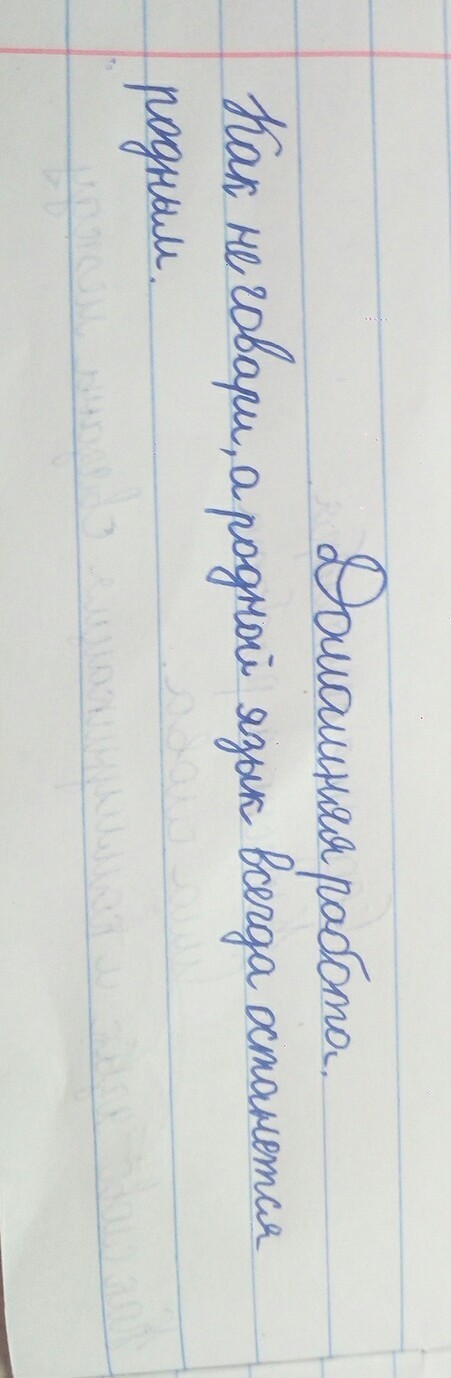 Домашняя работа.
Как не говори, а родной язык всегда останется
родным.